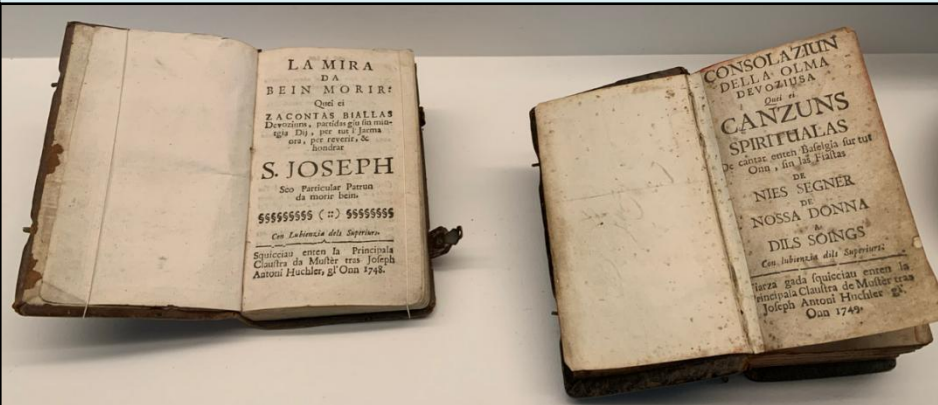 LA MIRA
DA
BEIN MORIR:
Quei ei
ZACONTAS BIALLAS
Devoziuns, partidas giu sin min-
gia Dij, per tut i Jarma
ora, per reverir, &
hondrar
S. JOSEPH
Sco Particular Patrun
da morir bein.
§§§§§§§§§ (::) §§§§§§§§
Con Lubienzia dels Superiurs.
Squicciau enten la Principala
Claustra da Mustèr tras Joseph
Antoni Huchler, gl'Onn 1748.
CONSOLAZIUN
DELLA OLMA
DEVOZIUSA
Quei ei
CANZUNS
SPIRITUALAS
De cantar enten Baselgia sur tut
Onn, sin las Fiastas
DE
NIES SEGNER
DE
NOSSA DONNA
A
DILS SOINGS
Con lubienzia dils Superiurs.
Tiarza gada squicciau enten la
Principala Claustra de Mustèr tras
Joseph Antoni Huchler gl'
Onn 1749.